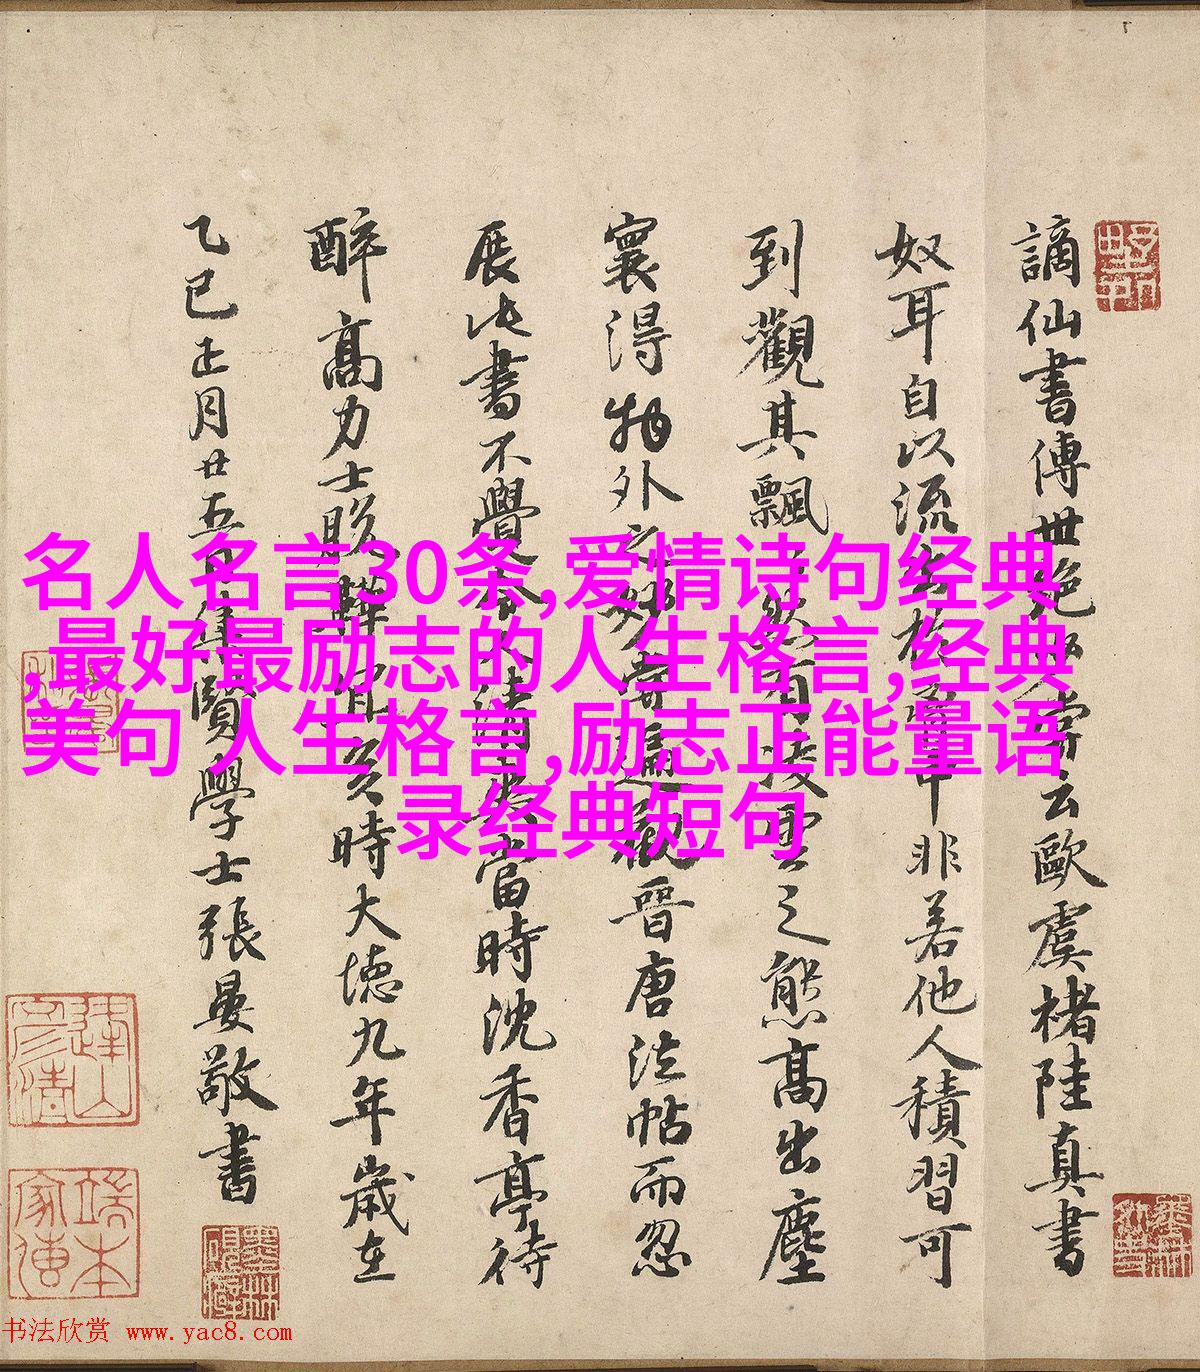 謫仙書傳世絕少嘗云歐虞褚陸真書
奴耳自以流出於胸中非若他人積習可
到觀其飄飄然有凌雲之態高出塵
寰得物外之妙嘗遍觀晉唐法帖而忽
展此書不覺令人清爽當時沈香亭待
醉高力士脫鞾宜矣時大德九年歲在
乙巳正月廿五日集賢學士張晏敬書
名人名言30条,爱情诗句经典
,最好最励志的人生格言,经典
美句 人生格言,励志正能量语
录经典短句
书法欣赏 www.yac8.com